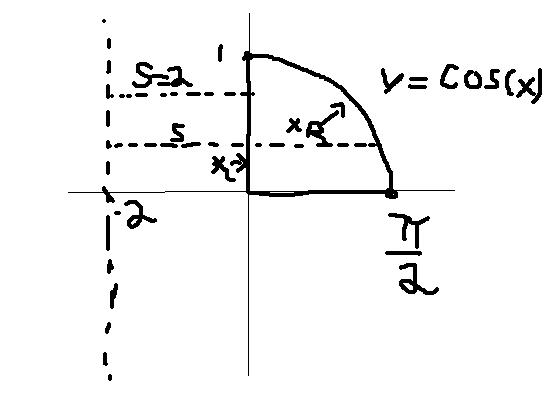 1
S=2
y = cos(x)
S
x_R
x_L
-2
π/2